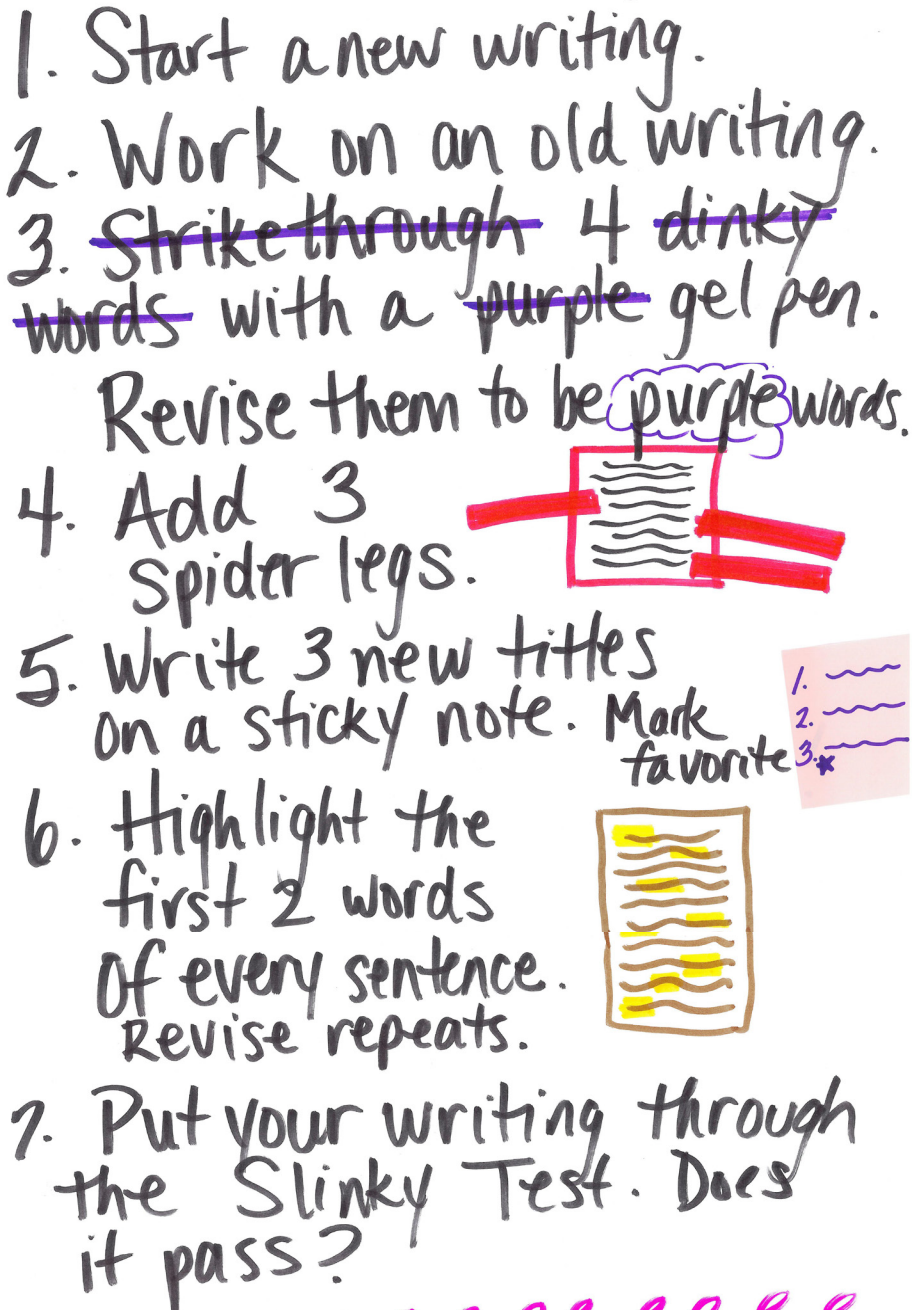 1. Start a new writing.
2. Work on an old writing.
3. Strikethrough 4 dinky
words with a purple gel pen.
Revise them to be purple words.
4. Add 3
spider legs.
5. Write 3 new titles
on a sticky note. Mark
favorite
1.
2.
3.
6. Highlight the
first 2 words
of every sentence.
Revise repeats.
7. Put your writing through
the Slinky Test. Does
it pass?